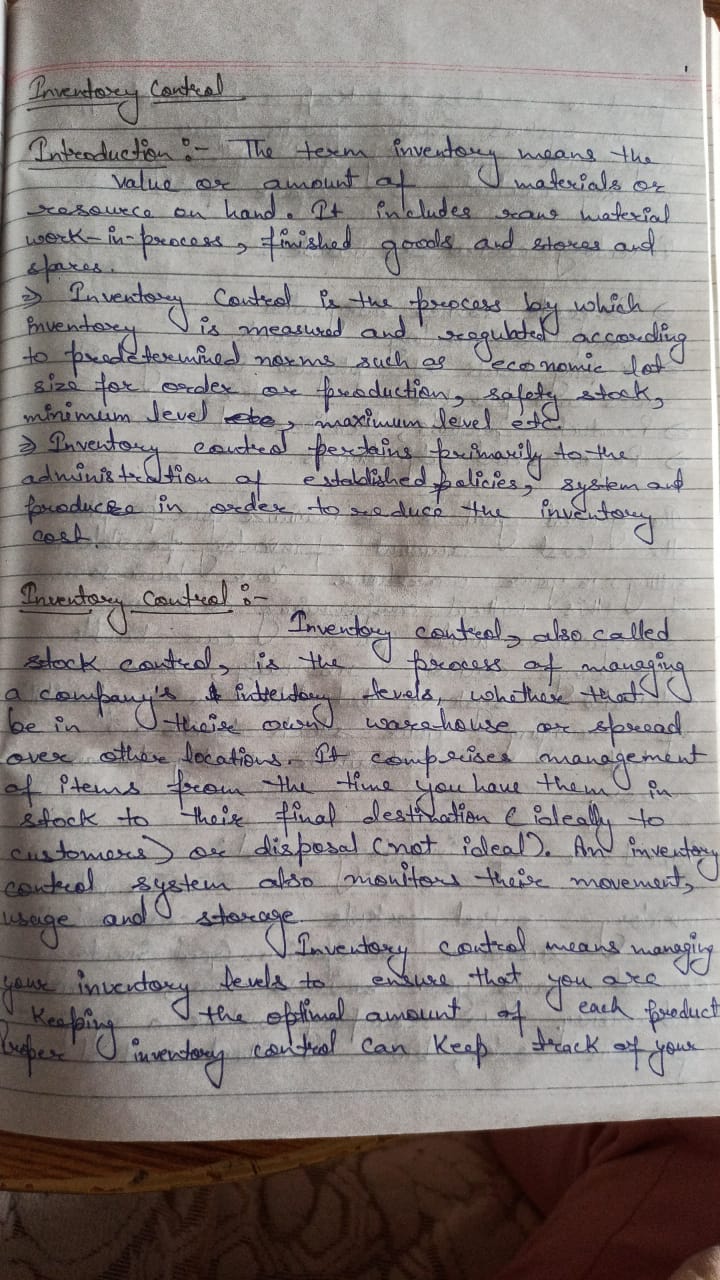 Inventory Control
Introduction :- The term inventory means the
value or amount of materials or
resource on hand. It includes raw material
work-in-process, finished goods and stores and
spares.
⇒ Inventory Control is the process by which
inventory is measured and regulated according
to predetermined norms such as economic lot
size for order or production, safety stock,
minimum level, maximum level etc.
⇒ Inventory control pertains primarily to the
administration of established policies, system and
in order to reduce the inventory
cost.
Inventory Control :-
Inventory control, also called
stock control, is the process of managing
a company's levels, whether that
be in their own warehouse or spread
over other locations. It comprises management
of items from the time you have them in
stock to their final destination (ideally to
customers) or disposal (not ideal). An inventory
control system also monitors their movement,
usage and storage
Inventory control means managing
your inventory levels to ensure that you are
Keeping the optimal amount of each product
Proper inventory control can Keep track of your